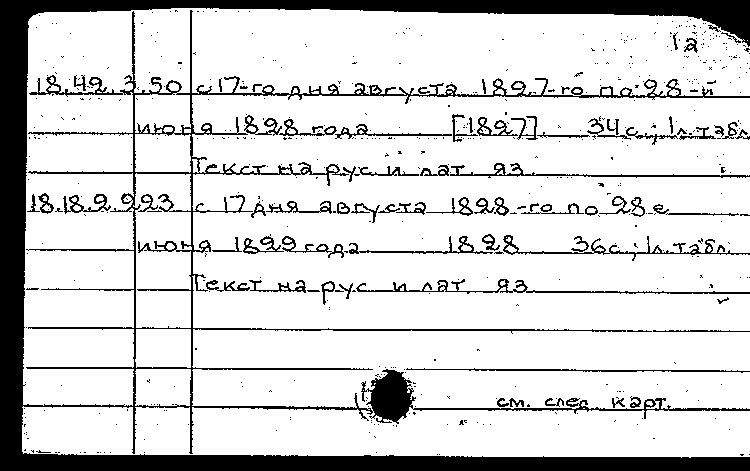 1а
18.42.3.50 с 17-го дня августа 1827-го по 28-й
июня 1828 года [1827]. 34с.; 1л.табл.
Текст на рус. и лат. яз.
18.18.2.223 с 17 дня августа 1828-го по 28 е
июня 1829 года 1828 36с.; 1л.табл.
Текст на рус. и лат. яз.
см. след. карт.